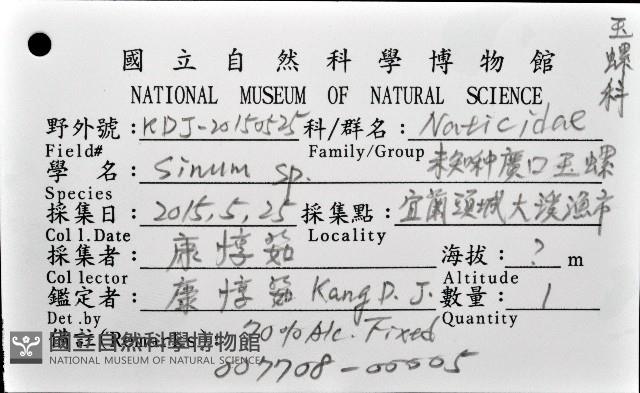 玉螺科
國立自然科學博物館
NATIONAL MUSEUM OF NATURAL SCIENCE
野外號：KDJ-20150525 科/群名：Naticidae
Field# Family/Group 未知種廣口玉螺
學 名：Sinum sp.
Species
採集日：2015,5,25 採集點：宜蘭頭城大溪漁市
Coll.Date Locality
採集者：康惇 海拔：? m
Collector Altitude
鑑定者：康惇 Kang D. J. 數量：1
Det.by Quantity
備註(Remarks)：70% Alc. Fixed
國立自然科學博物館
NATIONAL MUSEUM OF NATURAL SCIENCE
007708-00005